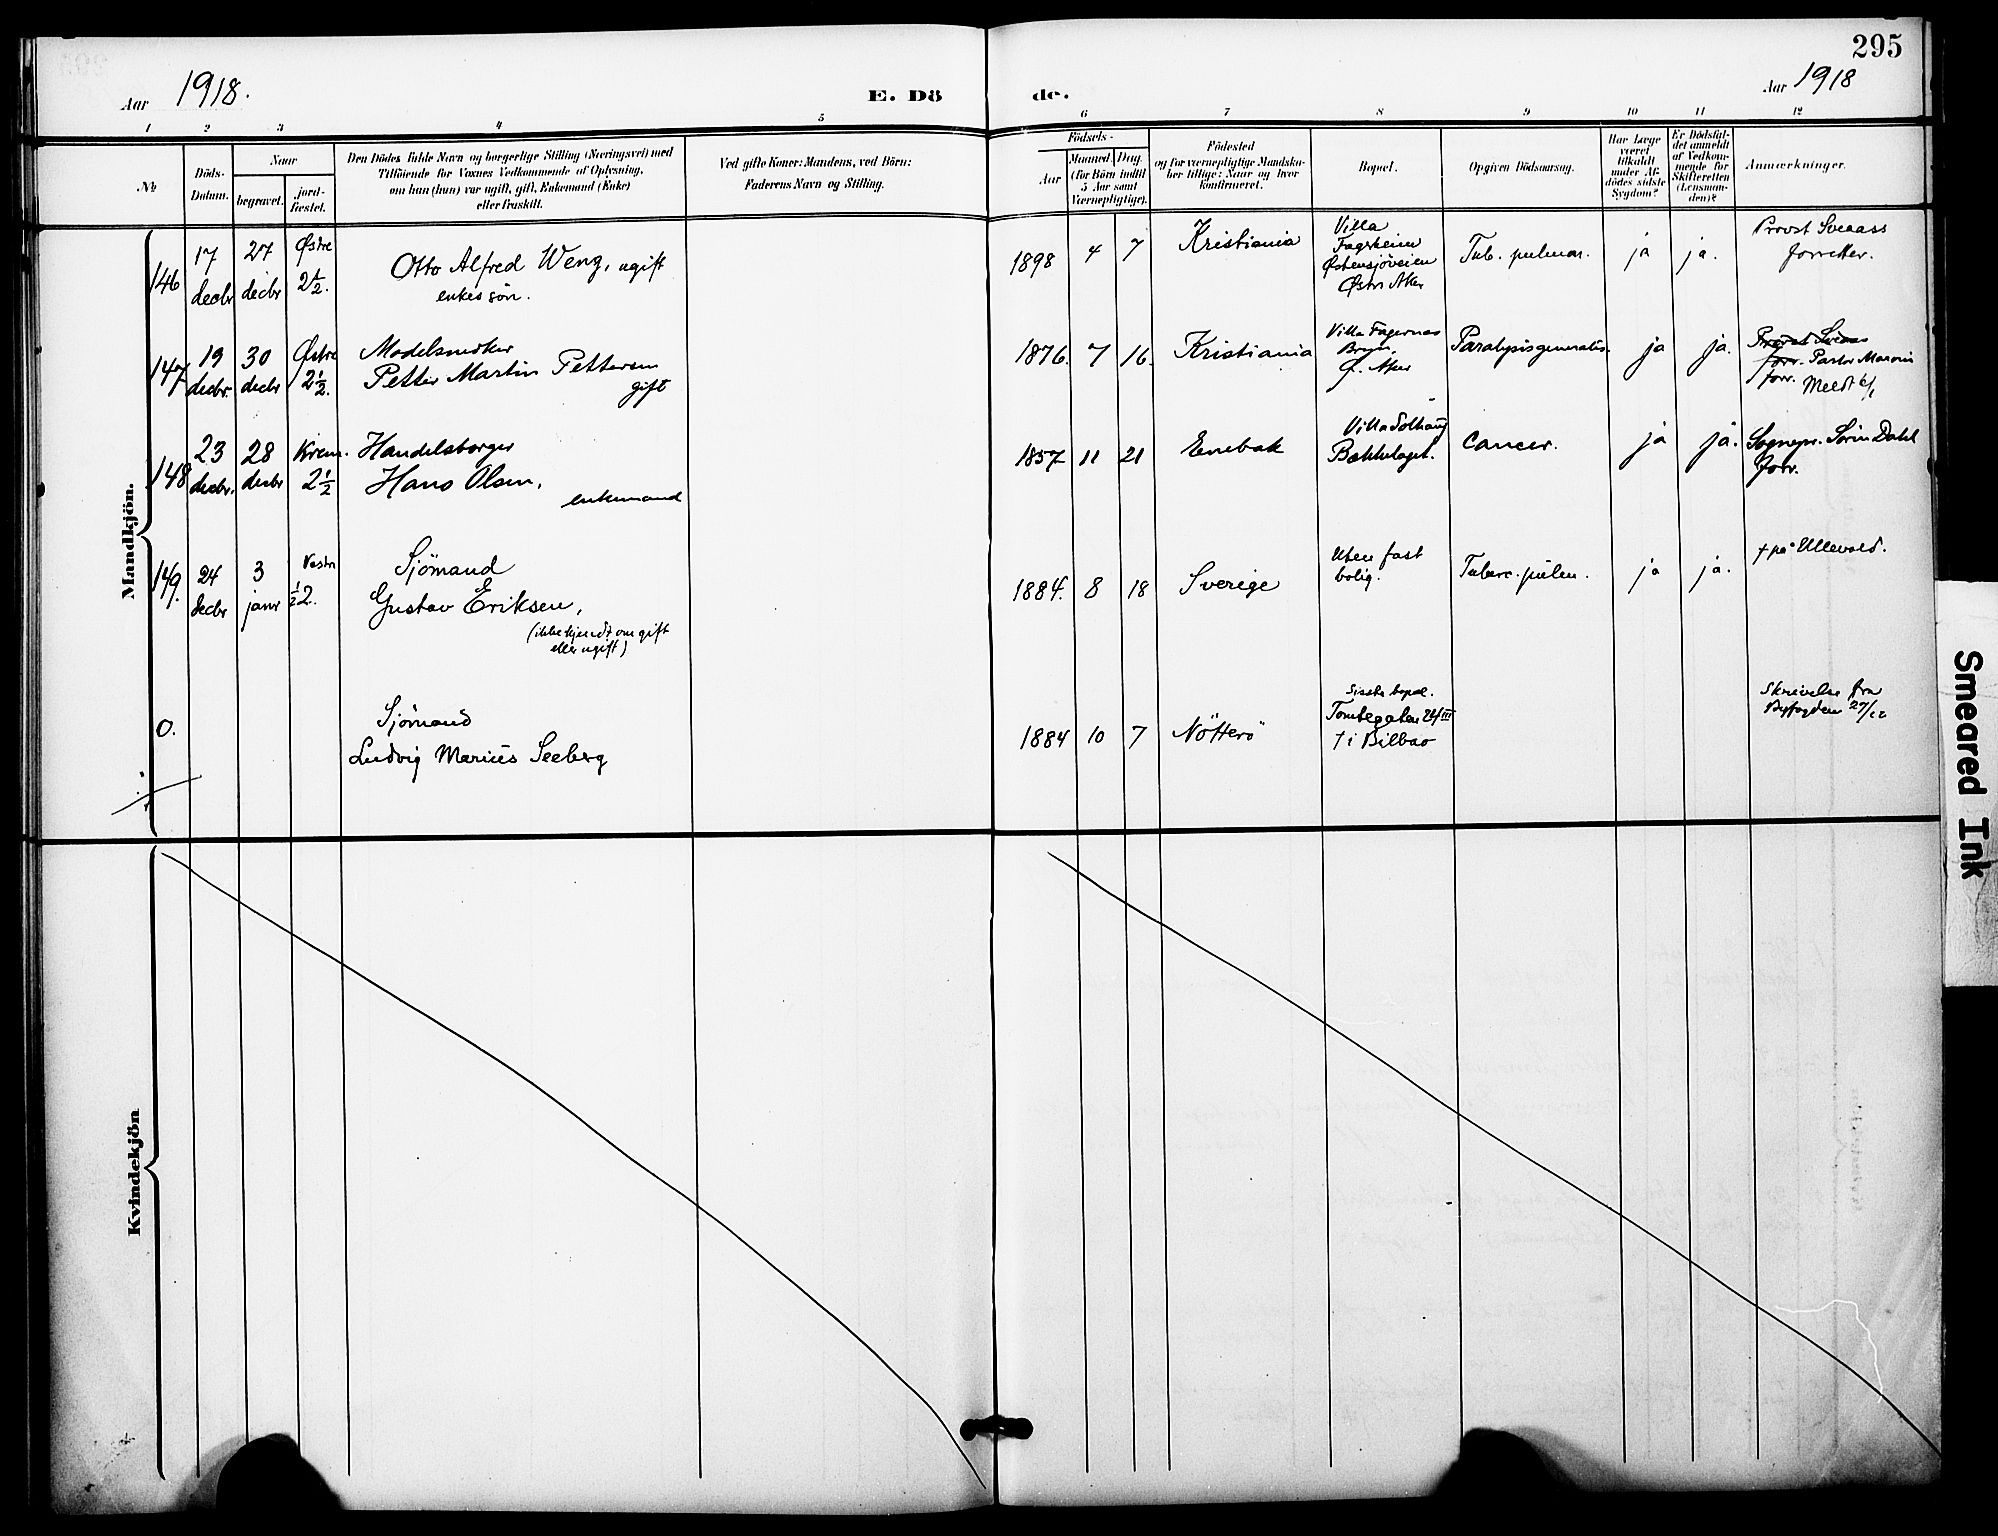 295
Aar 1918.
E. Döde.
Aar 1918
1 2 3 4 5 6 7 8 9 10 11 12
No
Döds-
Datum.
Naar
begravet.
jord-
fæstet.
Den Dödes fulde Navn og borgerlige Stilling (Næringsvei) med
Tilföiende for Voxnes Vedkommende af Oplysning,
om han (hun) var ugift, gift, Enkemand (Enke)
eller fraskilt.
Ved gifte Koner: Mandens, ved Börn:
Faderens Navn og Stilling.
Födsels-
Aar
Maaned. Dag.
(for Börn indtil
5 Aar samt
Værnepligtige).
Födested
og for værnepligtige Mandska-
ber tillige: Naar og hvor
konfirmeret.
Bopæl.
Opgiven Dödsaarsag.
Har Læge
været
tilkaldt
under Af-
dödes sidste
Sygdom?
Er Dödsfal-
det anmeldt
af Vedkom-
mende for
Skifteretten
(Lensman-
den)?
Anmærkninger.
Mandkjön.
146
17
decbr
27
decbr
Østre
2 1/2.
Otto Alfred Weng, ugift
enkes sön.
1898 4 7
Kristiania
Villa
Fagerheim
Østensjöveien
Østre Aker
Tub. pulmon.
ja
ja.
Provst Sveaass
forretter.
147
19
decbr.
30
decbr
Østre
2 1/2.
Modelsnedker
Petter Martin Pettersen
gift
1876. 7 16.
Kristiania
Villa Fagernæs
Bryn.
Ø. Aker
Paralysis generalis.
ja
ja.
Provst Sveaas
forr. Pastor
forr. Meldt 6/1
148
23
decbr.
28
decbr
Krem.
2 1/2
Handelsborger
Hans Olsen,
enkemand
1857 11 21
Enebak
Villa Solhaug
Bækkelaget.
Cancer.
ja
ja.
Sognepr. Sörin Dahl
forr.
149.
24
decbr
3
janr
Vestre
1/2 2.
Sjömand
Gustav Eriksen,
(ikke kjendt om gift
eller ugift)
1884. 8 18
Sverige
Uten fast
bolig.
Tuberc. pulm.
ja
ja.
† på Ullevold.
0.
Sjömand
Ludvig Marius Seeberg
1884 10 7
Nötterö
Sidste bopæl.
Tomtegaten 26/III
† i Bilbao
Skrivelse fra
Byfogden 27/12
Kvindekjön
Smeared Ink